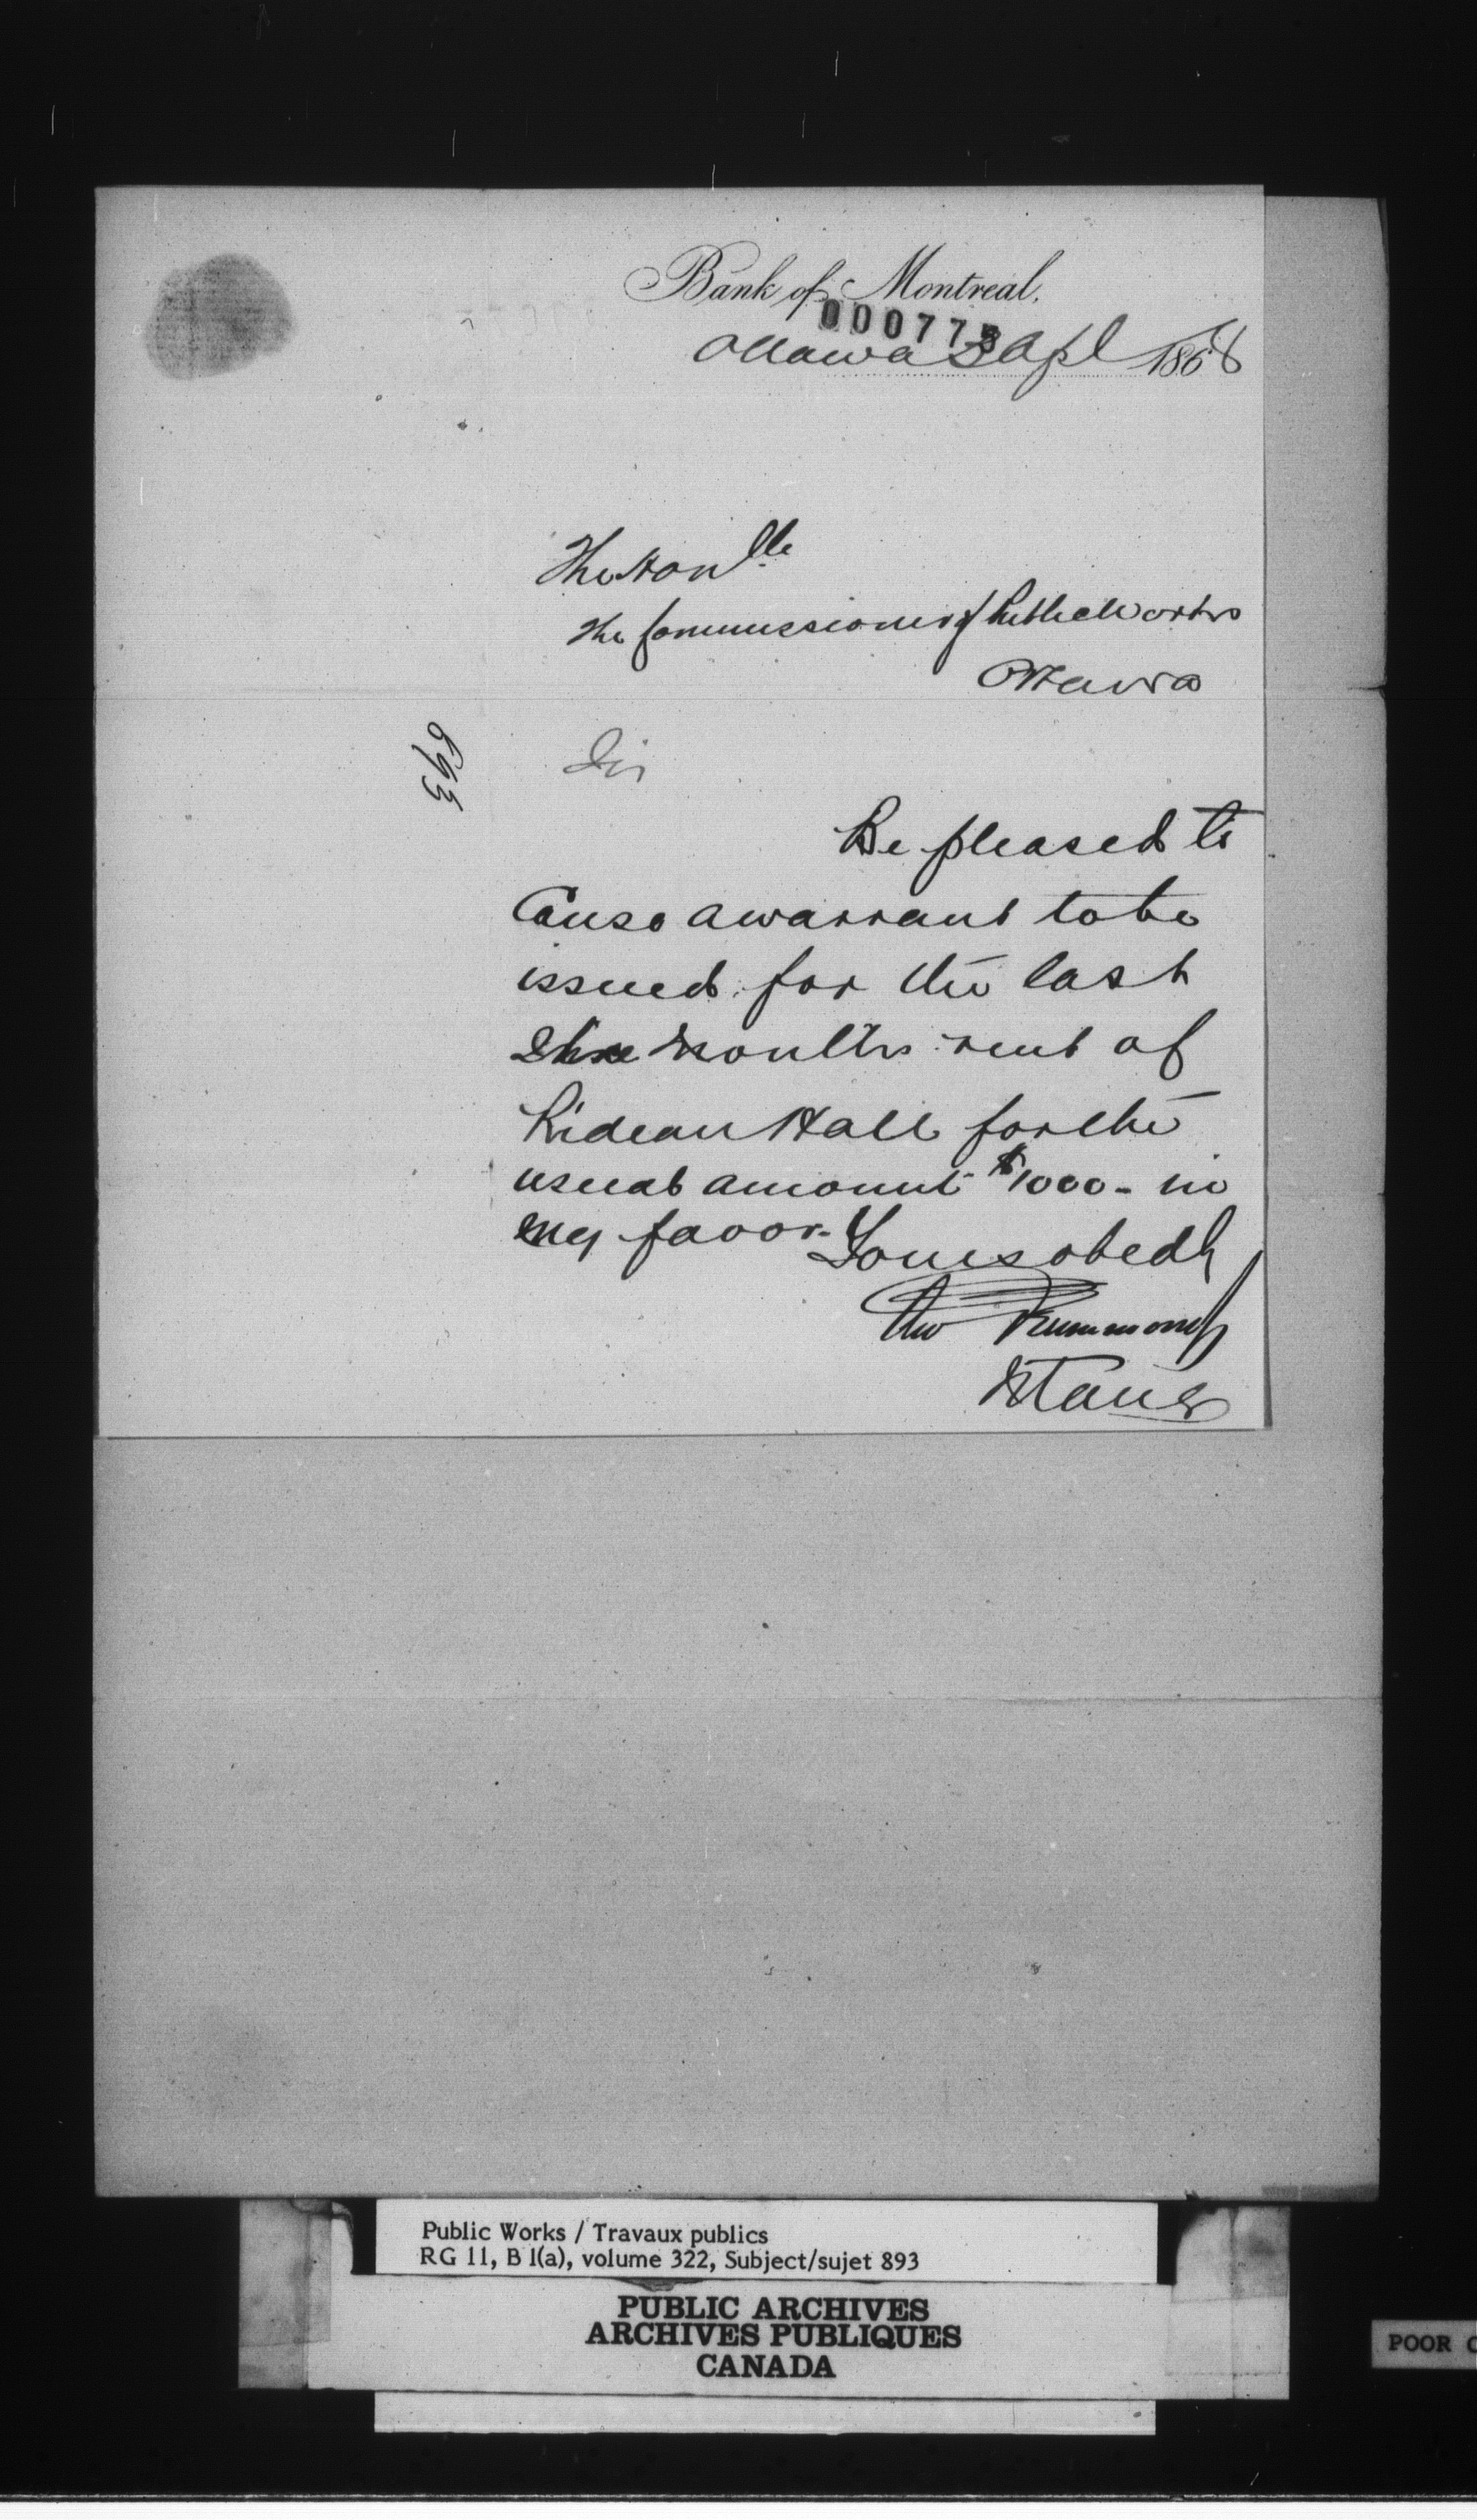 Bank of Montreal.
000773
Ottawa 3 Apl 1868
The Honble
The Commissioner of Public Works
Ottawa
Sir
Be pleased to
Cause a warrant to be
issued for the last
three months rent of
Rideau Hall for the
usual amount $1000- in
my favor. Yours obedly
Drummond
893
Public Works / Travaux publics
RG 11, B 1(a), volume 322, Subject/sujet 893
PUBLIC ARCHIVES
ARCHIVES PUBLIQUES
CANADA
POOR